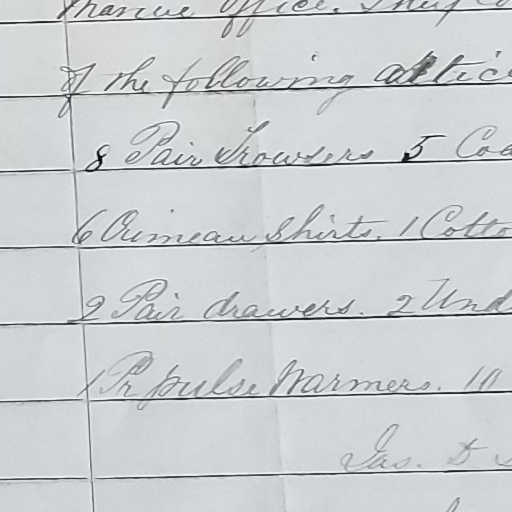 Marine Office. They
of the following artic
8 Pair Trowsers 5 Coa
6 Crimean Shirts. 1 Cotto
2 Pair drawers. 2 Und
1 Pr pulse Warmers. 10
Jas. D